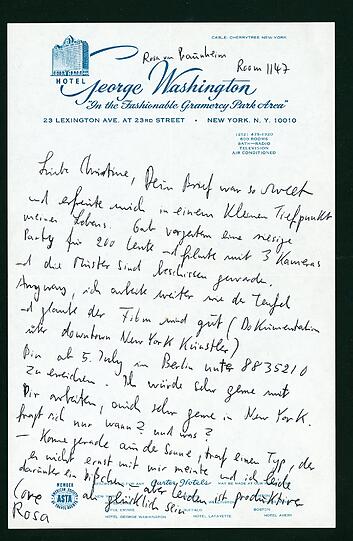 CABLE: CHERRYTREE NEW YORK
Rosa von Praunheim
Room 1147
HOTEL
George Washington
"In the Fashionable Gramercy Park Area"
23 LEXINGTON AVE. AT 23RD STREET • NEW YORK, N. Y. 10010
(212) 475-1920
600 ROOMS
BATH—RADIO
TELEVISION
AIR CONDITIONED
Liebe Christine, Dein Brief war so sweet
und erfreute mich in einem kleinen Tiefpunkt
meines Lebens. Gab vorgestern eine riesige
Party für 200 Leute + filmte mit 3 Kameras
+ die Muster sind beschissen geworden.
Anyway, ich arbeite weiter wie der Teufel
+ glaube der Film wird gut (Dokumentation
über downtown New York Künstler)
Bin ab 5. July in Berlin unter 8835210
zu erreichen. Ich würde sehr gerne mit
Dir arbeiten, auch sehr gerne in New York.
fragt sich nur wann? und was?
— Komme gerade aus der Sonne, traf einen Typ, der
es nicht ernst mit mir meinte und ich leide
darunter ein bißchen, aber leiden ist produktiver
als glücklich sein
Love
Rosa
MEMBER
ASTA
Gurley Hotels
HOTEL GEORGE WASHINGTON
HOTEL LAFAYETTE
HOTEL AVERY